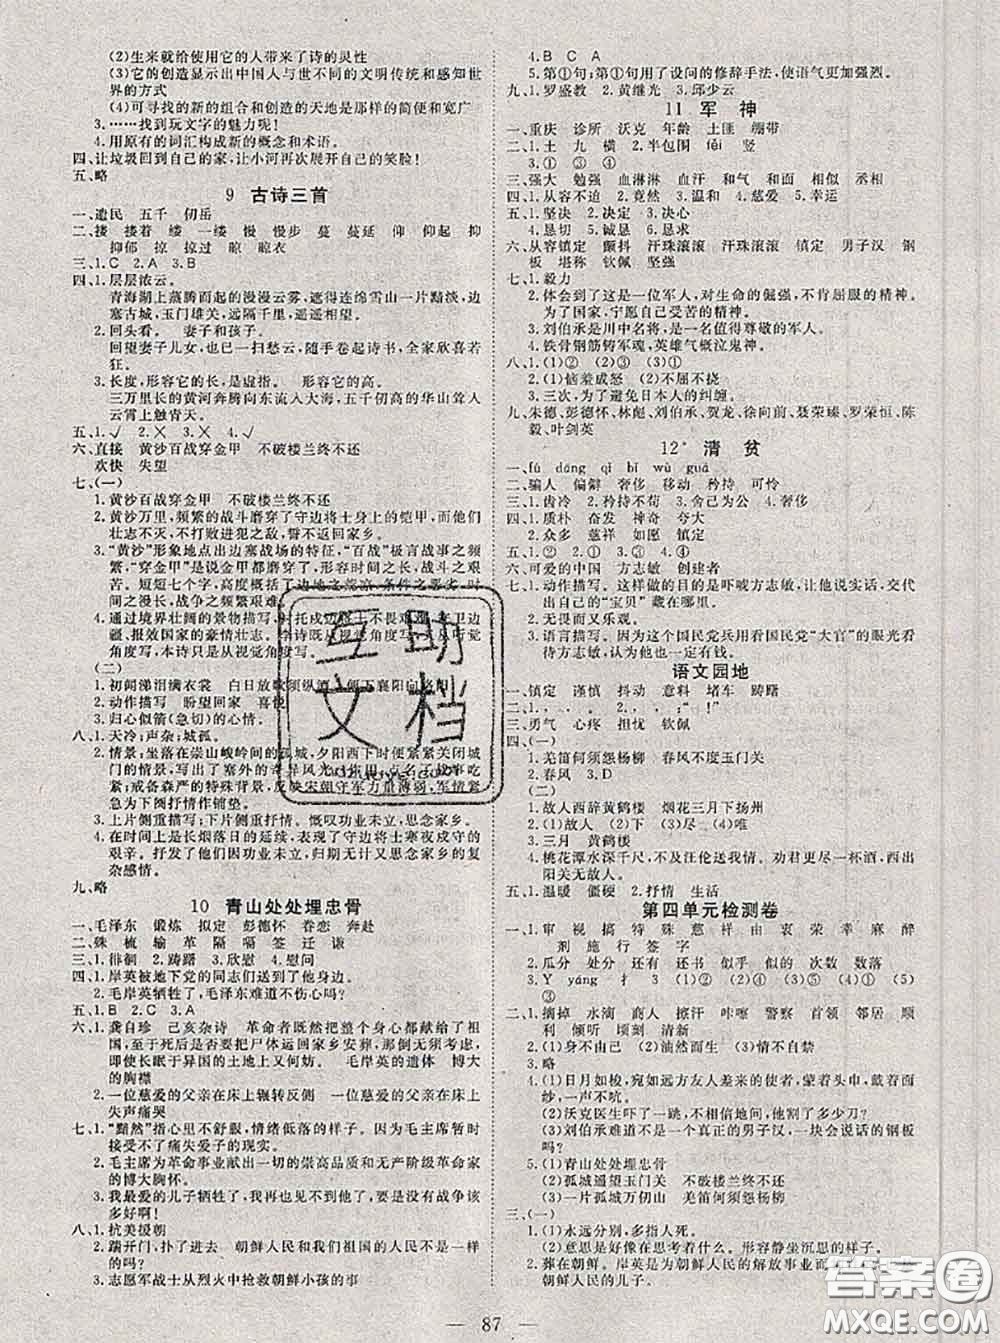 (2)生来就给使用它的人带来了诗的灵性
(3)它的创造显示出中国人与世不同的文明传统和感知世
界的方式
(4)可寻找的新的组合和创造的天地是那样的简便和宽广
3.……找到玩文字的魅力呢!
4.用原有的词汇构成新的概念和术语。
四、让垃圾回到自己的家,让小河再次展开自己的笑脸!
五、略
9 古诗三首
一、遗民 五千 仞岳
二、搂 搂着 缕 一缕 慢 慢步 蔓 蔓延 仰 仰起 抑
抑郁 掠 掠过 晾 晾衣
三、1.C 2.A 3.B
四、1.层层浓云。
青海湖上蒸腾而起的漫漫云雾,遮得连绵雪山一片黯淡,边
塞古城,玉门雄关,远隔千里,遥遥相望。
2.回头看。 妻子和孩子。
回望妻子儿女,也已一扫愁云,随手卷起诗书,全家欣喜若
狂。
3.长度,形容它的长,是虚指。 形容它的高。
三万里长的黄河奔腾向东流入大海,五千仞高的华山耸入
云霄上触青天。
五、1.√ 2.× 3.× 4.√
六、直接 黄沙百战穿金甲 不破楼兰终不还
欢快 失望
七、(一)
1.黄沙百战穿金甲 不破楼兰终不还
2.黄沙万里,频繁的战斗磨穿了守边将士身上的铠甲,而他们
壮志不灭,不打败进犯之敌,誓不返回家乡。
3.“黄沙”形象地点出边塞战场的特征,“百战”极言战事之频
繁,“穿金甲”是战事频繁之下的磨穿,形容时间之长、战斗之艰
苦。短短七个字,高度概括了边地之荒凉、条件之艰、
战事之频繁、战斗艰难。
4.通过环境壮阔的景物描写,衬托戍边将士不畏艰难、
疆、报效国家的豪情壮志。
角度写,本诗只是从视觉角度写。
(二)
1.初闻涕泪满衣裳 白日放歌须纵酒 便下襄阳向洛阳
2.动作描写 盼望回家 喜悦
3.归心似箭(急切)的心情。
八、1.天冷;声杂;城孤。
2.情景:坐落在崇山峻岭间的孤城,夕阳西下时便紧紧关闭城
门的情景。
戒备森严的特殊背景,反映宋朝守军力量薄弱,军情紧
急,为下阕抒情作铺垫。
3.上片侧重描写:写景。 下片侧重抒情。 慨叹功业未立、思念家乡。
4.在时间上是长烟落日的延续,表现了守边将士寒夜戍守的
艰辛。抒发了他们因功业未立、归期无计又思念家乡的复
杂感情。
九、略
10 青山处处埋忠骨
一、毛泽东 锻炼 拟定 彭德怀 眷恋 奔赴
二、殊 梳 输 革 隔 嗝 签 迁 谦
三、1.徘徊 2.踌躇 3.欣慰 4.慰问
四、1.岸英被地下党的同志们送到了他身边。
2.毛岸英牺牲了,毛泽东难道不伤心吗?
五、1.B 2.C 3.A
六、1.龚自珍 己亥杂诗 革命者既然把整个身心都献给了祖
国,至于死后是否要把尸体运回家乡安葬,那倒无关紧要,
即使长眠于异国的土地上又何妨。 毛岸英的遗体 博大
的胸襟
2.一位慈爱的父亲在床上辗转反侧 一位慈爱的父亲在床上
失声痛哭
七、1.“黯然”指心里不舒服,情绪低落的样子。因为毛主席暂时
接受不了痛失爱子的现实。
2.毛主席为革命事业献出一切的崇高品质和无产阶级革命家
的博大胸怀。
3.我最爱的儿子牺牲了,我很想念他,要是没有战争该
多好啊!
八、1.抗美援朝
2.踹开门,扑了进去 朝鲜人民和我们祖国的人民不是一样
的吗?
3.志愿军战士从烈火中抢救朝鲜小孩的事
4.B C A
5.第①句;第①句用了设问的修辞手法,使语气更加强烈。
九、1.罗盛教 2.黄继光 3.邱少云
11 军神
一、重庆 诊所 沃克 年龄 土匪 绷带
二、1.土 九 横 2.半包围 fēi 竖
3.① ③ ④
三、强大 勉强 血淋淋 血汗 和气 和面 相似 丞相
四、1.从容不迫 2.竟然 3.温和 4.慈爱 5.幸运
五、1.坚决 2.决定 3.决心
4.恳切 5.诚恳 6.恳求
六、从容镇定 颤抖 汗珠滚滚 汗珠滚滚 镇定 男子汉 钢
板 堪称 钦佩 坚强
七、1.毅力
2.体会到了这是一位军人,对生命的倔强,不肯屈服的精神。
为了国家,宁愿自己受苦的精神。
3.刘伯承是川中名将,是一名值得尊敬的军人。
4.铁骨钢筋铸军魂,英雄气概泣鬼神。
八、1.(1)② (2)③ (3)①
2.(1)恼羞成怒 (2)不屈不挠
3.三次,为了避免日本人的纠缠。
九、朱德、彭德怀、林彪、刘伯承、贺龙、徐向前、聂荣臻、罗荣恒、陈
毅、叶剑英
12* 清贫
一、fú dāng qì bǐ wù guā
二、骗人 偏僻 奢侈 移动 矜持 可怜
三、1.齿冷 2.矜持不苟 3.舍己为公 4.奢侈
四、1.质朴 奋发 神奇 夸大
2.众多 慈祥 如愿 镇定
五、1.② 2.① 3.③ 4.④
六、可爱的中国 方志敏 创建者
七、1.动作描写。这样做的目的是吓唬方志敏,让他说实话,交代
出自己的“宝贝”藏在哪里。
2.无畏而又乐观。
3.语言描写。因为这个国民党兵用看国民党“大官”的眼光看
待方志敏,认为他一定很有钱。
语文园地
一、镇定 谨慎 抖动 意料 堵车 踌躇
三、勇气 心疼 担忧 钦佩
四、(一)
1.羌笛何须怨杨柳 春风不度玉门关
2.春风 3.D
(二)
1.故人西辞黄鹤楼 烟花三月下扬州
2.(1)故人 (2)下 (3)尽 (4)唯
3.三月 黄鹤楼
4.桃花潭水深千尺,不及汪伦送我情。 劝君更尽一杯酒,西出
阳关无故人。
五、1.温暖 僵硬 2.抒情 生活
第四单元检测卷
一、1.审 视 搞 特 殊 慈 祥 由 衷 荣 幸 麻 醉
剂 施 行 签 字
2.瓜分 处分 还有 还书 似乎 似的 次数 数落
3.Y yáng 扌 3 (1)② (2)④ (3)④ (4)① (5)
③
二、1.摘掉 水滴 商人 擦汗 咔嚓 警察 首领 邻居 顺
利 倾听 顷刻 清新
2.(1)身不由己 (2)油然而生 (3)情不自禁
3.略
4.(1)日月如梭,宛如远方友人差来的使者,蒙着头巾,默默
一声不吭。
(2)沃克医生吓了一跳,不相信地问,他割了多少刀?
(3)刘伯承难道不是一个真正的男子汉,一块会说话的钢板
吗?
5.(1)青山处处埋忠骨
(2)孤城遥望玉门关 不破楼兰终不还
(3)一片孤城万仞山 羌笛何须怨杨柳
三、(一)
1.(1)永远分别,多指人死。
(2)意思是好像在思考着什么。形容静坐沉思的样子。
2.葬在朝鲜。因为岸英是为朝鲜人民的解放事业而
朝鲜人民的儿子。
互助
文档
答案圈
MXQE.COM
— 87 —